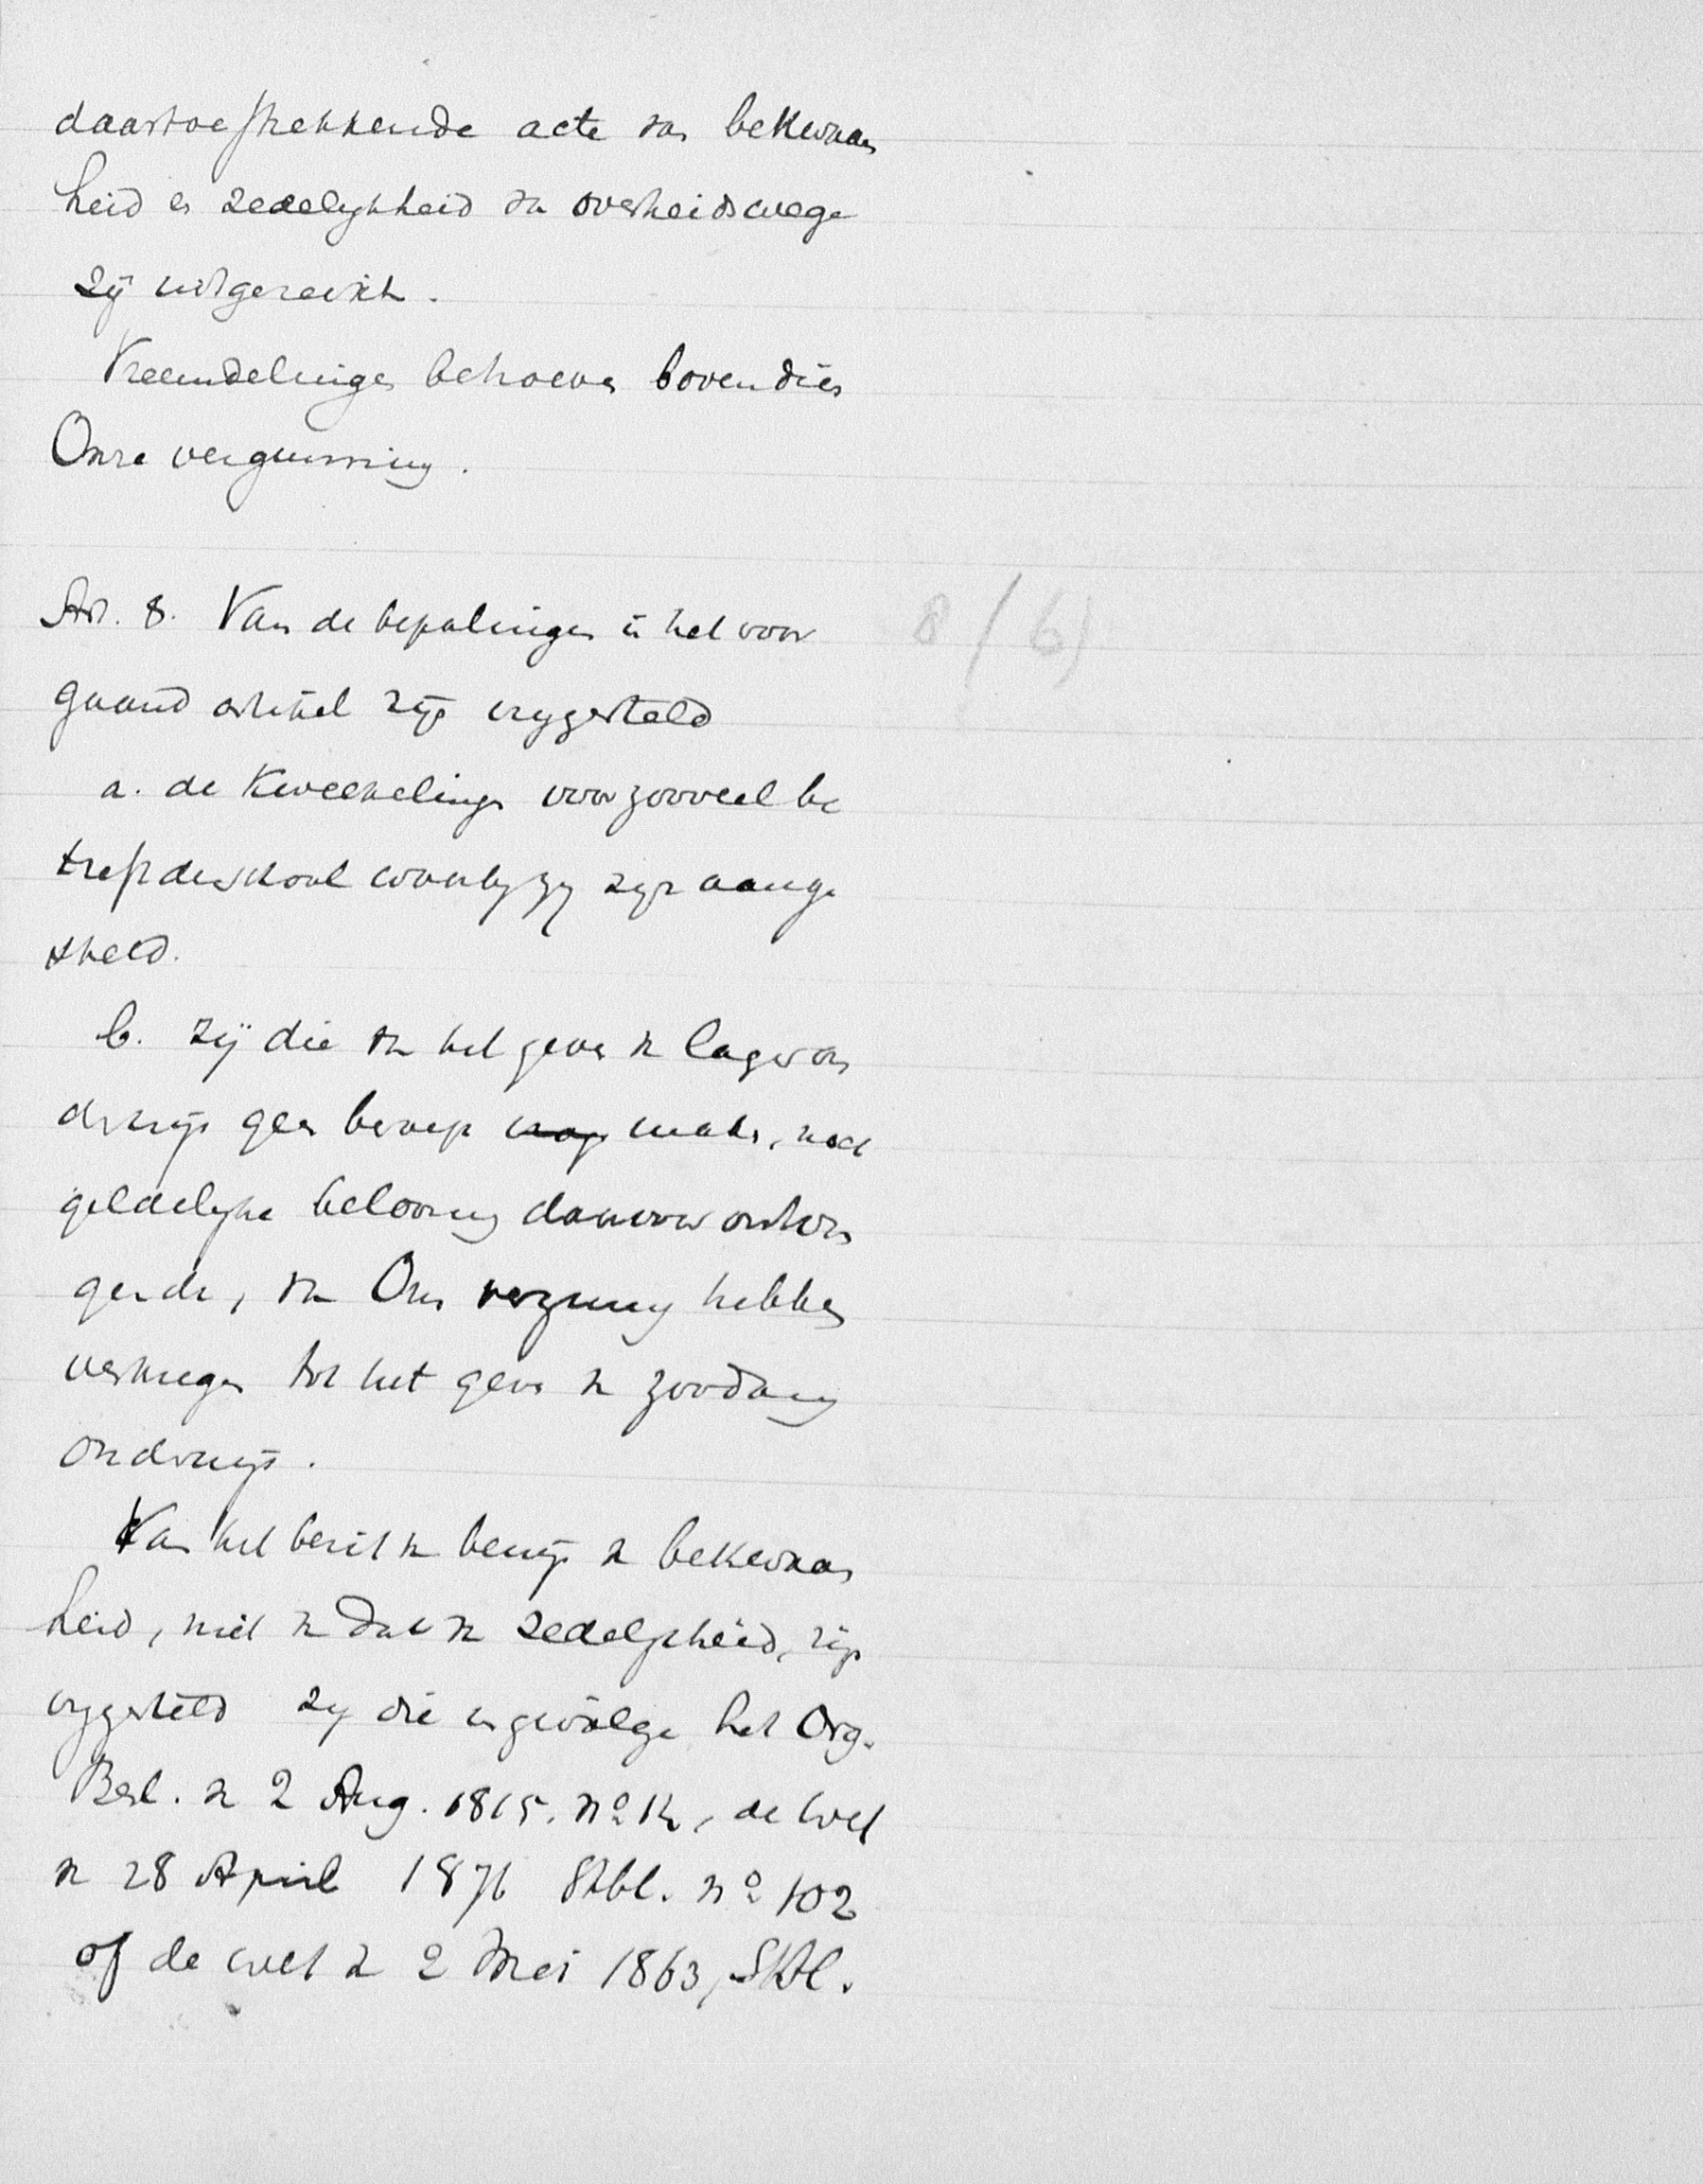 daartoestrekkende acte van bekwaam
heid en zedelijkheid van overheidswege
zij uitgereikt.
Vreemdelingen behoeven bovendien
Onze vergunning.
Art. 8. Van de bepalingen in het voor
gaand artikel zijn vrijgesteld
8 / 6)
a. de Kweekelingen voor zooveel be
treft de school waarbij zij zijn aange
steld.
b. zij die van het geven van lager on
derwijs geen beroep maken, noch
geldelijke belooning daarvoor ontvan
gende, van Ons vergunning hebben
verkregen tot het geven van zoodanig
onderwijs.
Van het bezit van bewijs van bekwaam
heid, niet van dat van zedelijkheid, zijn
vrijgesteld zij die ingevolge het Org.
Besl. van 2 Aug. 1815. nº 14, de wet
van 28 April 1876 Stbl. nº 102
of de wet van 2 Mei 1863, Stbl.